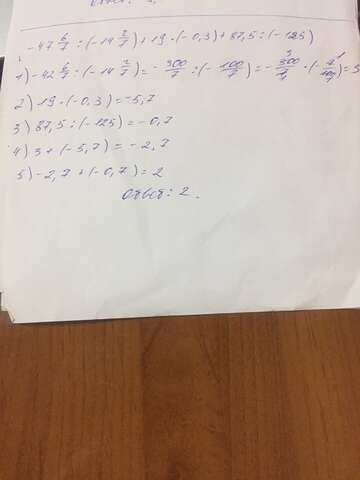 -47 6/7 : (-14 2/7) + 19 · (-0,3) + 87,5 : (-125)
1) -42 6/7 : (-14 2/7) = -300/7 : (-100/7) = -300/7 · (-7/100) = 3
2) 19 · (-0,3) = -5,7
3) 87,5 : (-125) = -0,7
4) 3 + (-5,7) = -2,7
5) -2,7 + (-0,7) = 2
ответ: 2.